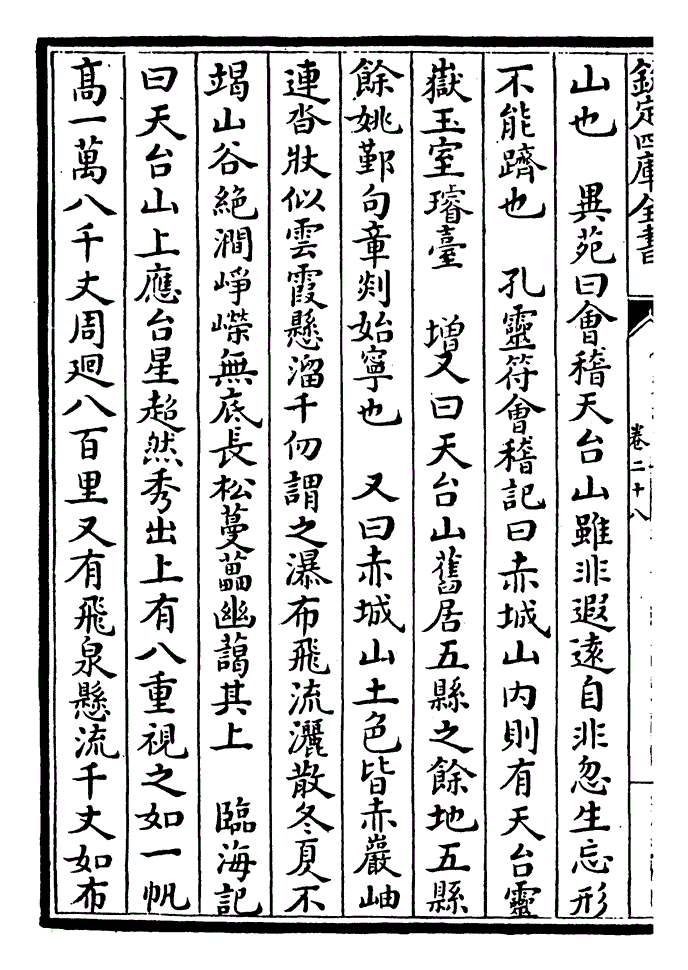 欽定四庫全書
卷二十八
山也　異苑曰會稽天台山雖非遐遠自非忽生忘形
不能躋也　孔靈符會稽記曰赤城山内則有天台靈
嶽玉室璿臺　增又曰天台山舊居五縣之餘地五縣
餘姚鄞句章剡始寧也　又曰赤城山土色皆赤巖岫
連沓狀似雲霞懸溜千仞謂之瀑布飛流灑散冬夏不
竭山谷絶澗崢嶸無底長松蔓藟幽藹其上　臨海記
曰天台山上應台星超然秀出上有八重視之如一帆
髙一萬八千丈周廻八百里又有飛泉懸流千丈如布